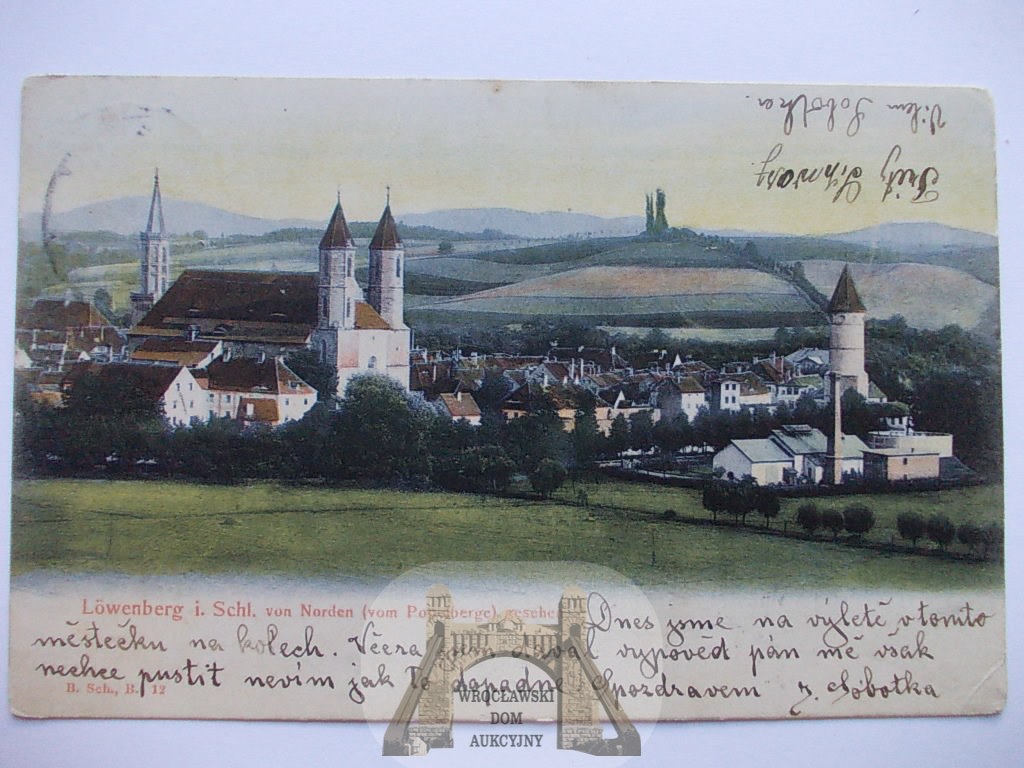 Vilem Sobotka.
Fritz Schwarz.
Löwenberg i. Schl. von Norden (vom
Dnes jsme na výletě v tomto
městečku na kolech. Včera vypověd pán mě však
nechce pustit nevím jak to dopadne S pozdravem
Sobotka
B. Sch., B. 12
WROCŁAWSKI
DOM
AUKCYJNY